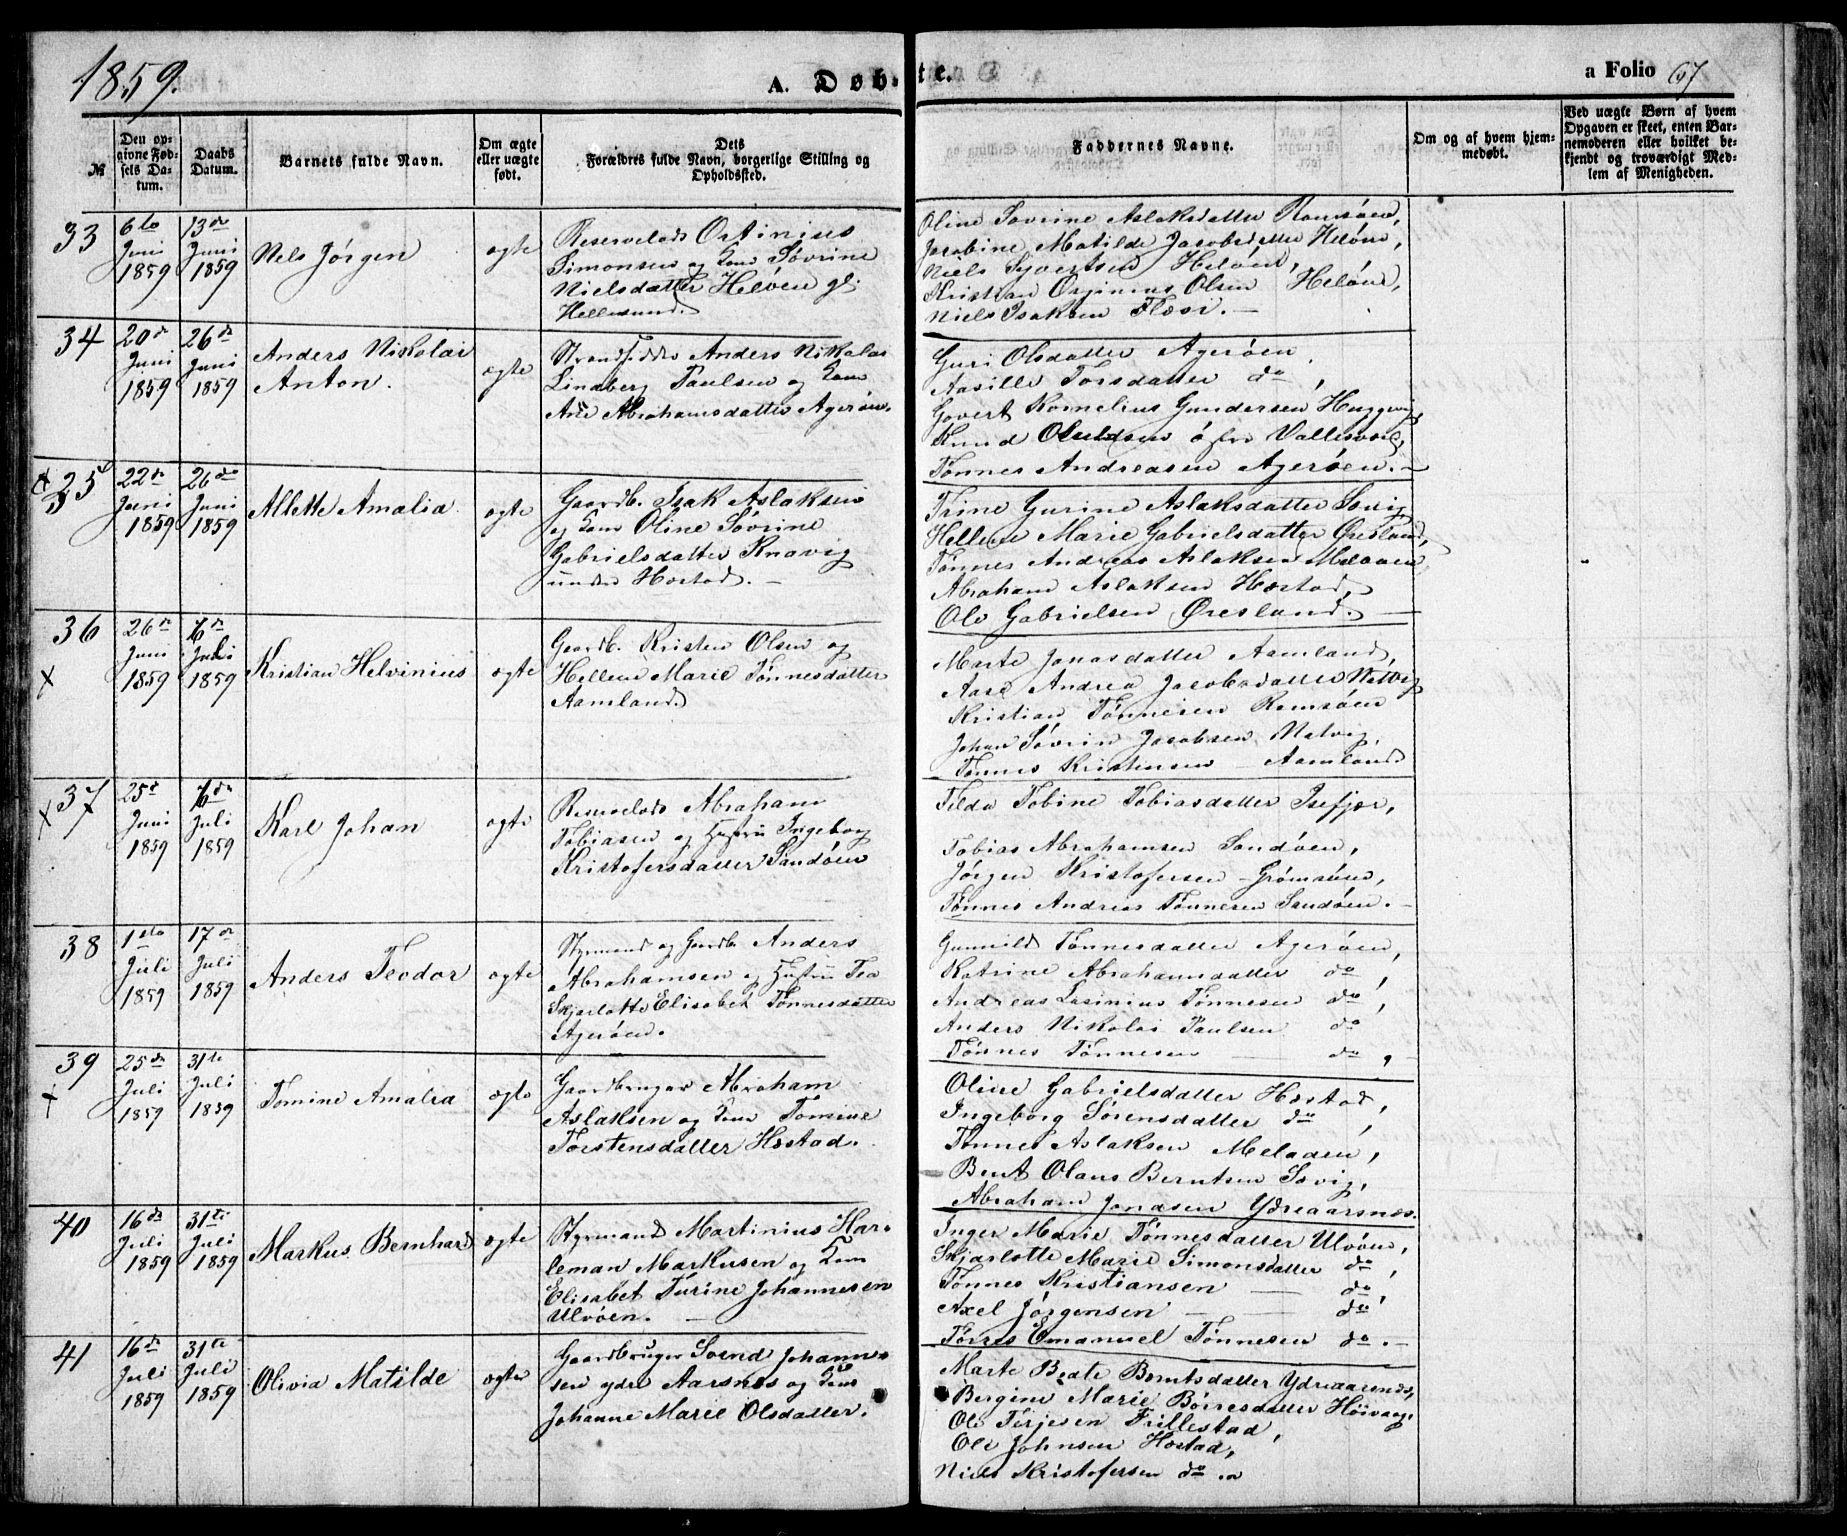 1859.
A. Døb-
te.
a Folio 67
№
Den op-
givne Fød-
sels Da-
tum.
Daabs
Datum.
Barnets fulde Navn.
Om ægte
eller uægte
født.
Dets
Forældres fulde Navn, borgerlige Stilling og
Opholdssted.
Faddernes Navne.
Om og af hvem hjem-
medøbt.
Ved uægte Børn af hvem
Opgaven er skeet, enten Bar-
nemoderen eller hvilket be-
kjendt og troværdigt Med-
lem af Menigheden.
33
6te
Juni
1859
13de
Juni
1859
Nels Jørgen
ægte
Ostinius
Simonsen og Sövrine
Nielsdatter Helöen gl:
Hellesund.
Oline Sovrine Aslaksdatter Ramsöen,
Jacobine Matilde Jacobsdatter Helöen,
Niels Syvertsen Helöen,
Kristian Olsen Helöen,
Niels Isaksen
34
20de
Juni
1859
26de
Juni
1859
Anders Nikolai
Anton.
ægte
Anders Nikolai
Lindberg Paulsen og
Ane Abrahamsdatter Ageröen.
Guri Olsdatter Ageröen
Aasille Torsdatter do,
Govert Kornelius Gundersen
Knud Vallesværd,
Tönnes Andreasen Ageröen.-
35
22de
Juni
1859
26de
Juni
1859
Allette Amalia
ægte
Gaardb. Isak Aslaksen
og Oline Sövrine
Gabrielsdatter Knavig
under Hæstad.-
Trine Gurine Aslaksdatter
Hellene Marie Gabrielsdatter Øresland,
Tönnes Andreas Aslaksen
Abraham Aslaksen Hæstad,
Ole Gabrielsen Øresland.
36
x
26de
Juni
1859
Juli
1859
Kristian Helvinius
ægte
Gaardb. Kristen Olsen og
Hellene Marie Tönnesdatter
Aamland
Marte Jonasdatter Aamland,
Andrea Jacobsdatter
Kristian Tönnesen Ramsöen
Johan Sövrin Jacobsen
Tönnes Kristensen - Aamland
37
x
25de
Juni
1859
Juli
1859
Karl Johan
ægte
Abraham
Tobiasen og Hustru Ingeborg
Kristofersdatter Sandöen
Tilda Tobine Tobiasdatter Isefjær,
Tobias Abrahamsen Sandöen,
Jörgen Kristofersen
Tönnes Andreas Tönnesen Sandöen.-
38
1ste
Juli
1859
17de
Juli
1859
Anders Teodor
ægte
Styrmand og Gaardb. Anders
Abrahamsen og Hustru Tea
Skjarlotte Elisabet Tönnesdatter
Ageröen.
Gunnild Tönnesdatter Ageröen,
Katrine Abrahamsdatter do,
Andreas Tönnesen do,
Anders Nikolai Paulsen do
Tönnes Tönnesen do,
39
x
25de
Juli
1859
31te
Juli
1859
Tomine Amalia
ægte
Gaardbruger Abraham
Aslaksen og Tomine
Torstensdatter Hæstad.
Oline Gabrielsdatter Hæstad,
Ingeborg Sörensdatter do,
Tönnes Aslaksen
Bent Olaus Berntsen
Abraham Jonasen Ydreaarsnæs.
40
16de
Juli
1859
31te
Juli
1859
Markus Bernhard
ægte
Styrmand Martinius Har-
leman Markusen og
Elisabet Turine Johannesen
Ulvöen.
Inger Marie Tönnesdatter Ulvöen,
Skjarlotte Marie Simonsdatter do,
Tönnes Kristiansen do,
Axel Jörgensen do
Emanuel Tönnesen do.-
41
16de
Juli
1859
31te
Juli
1859
Olivia Matilde
ægte
Gaardbruger Svend Johann-
sen ydre Aarsnes og
Johanne Marie Olsdatter.
Marte Beate Berntsdatter
Bergine Marie Börresdatter
Ole Terjesen Trillestad,
Ole Johnsen Hæstad,
Niels Kristofersen do